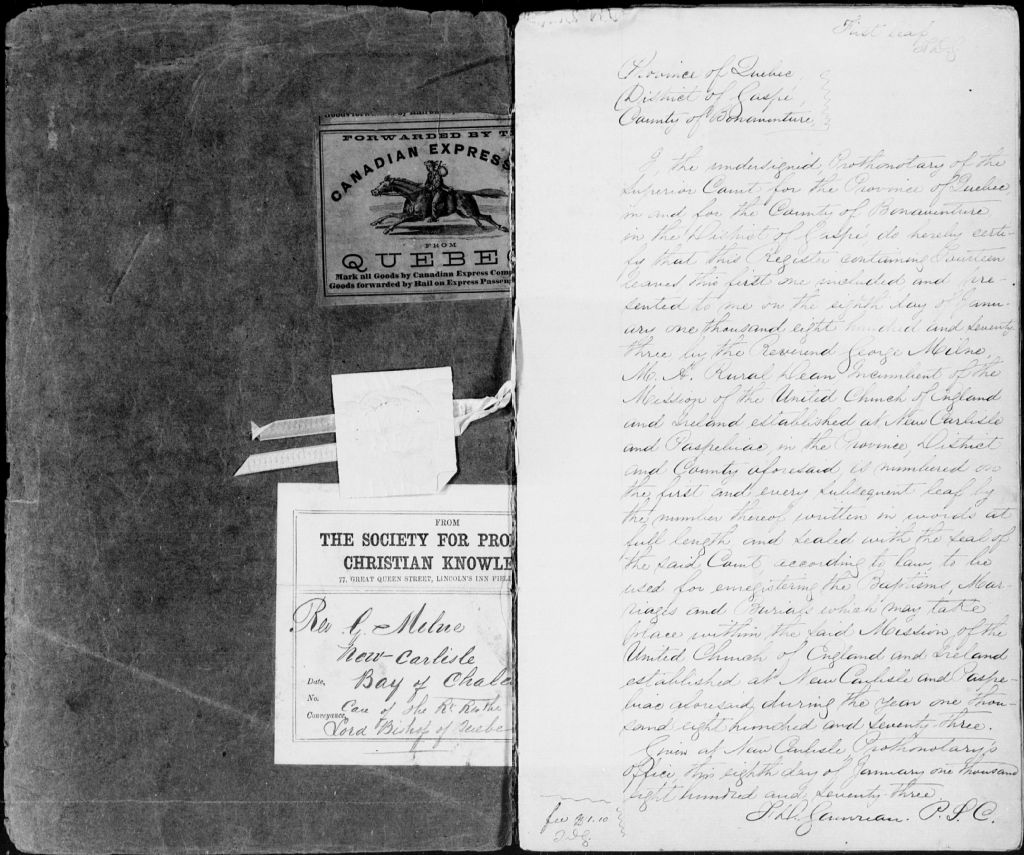 FORWARDED BY T
CANADIAN EXPRESS
FROM
QUEBEC
Mark all Goods by Canadian Express Com
Goods forwarded by Rail on Express Passen
FROM
THE SOCIETY FOR PRO
CHRISTIAN KNOWLE
77, GREAT QUEEN STREET, LINCOLN'S INN FIEL
Rev G. Milne
New-Carlisle
Date, Bay of Chale
No.
Conveyance, Care of the Rt Rev the
Lord Bishop of Quebec
First leaf
Province of Quebec,
District of Gaspé,
County of Bonaventure
I, the undersigned, Prothonotary of the
Superior Court for the Province of Quebec
in and for the County of Bonaventure
in the District of Gaspé do hereby certi-
fy that this Register containing Fourteen
leaves this first one included and pre-
sented to me on the eighth day of Janu-
ary one thousand eight hundred and seventy
three by the Reverend George Milne,
M. A. Rural Dean Incumbent of the
Mission of the United Church of England
and Ireland established at New Carlisle
and Paspebiac, in the Province, District
and County aforesaid, is numbered on
the first and every subsequent leaf by
the number thereof written in words at
full length and sealed with the seal of
the said Court, according to law, to be
used for enregistering the Baptisms, Mar-
riages and Burials which may take
place within the said Mission of the
United Church of England and Ireland
established at New Carlisle and Paspe-
biac aforesaid, during the year one thou-
sand eight hundred and seventy-three.
Given at New Carlisle Prothonotary's
Office, this eighth day of January one thousand
eight hundred and seventy-three.
P. S. C.
fee $1.10